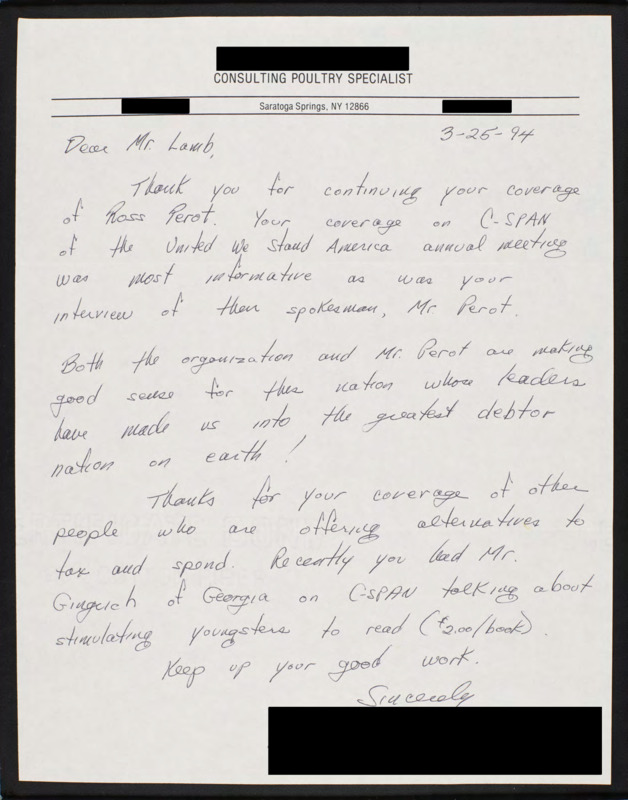 CONSULTING POULTRY SPECIALIST
Saratoga Springs, NY 12866
3-25-94
Dear Mr. Lamb,
Thank you for continuing your coverage
of Ross Perot. Your coverage on C-SPAN
of the United We Stand America annual meeting
was most informative as was your
interview of their spokesman, Mr Perot.
Both the organization and Mr. Perot are making
good sense for this nation whose leaders
have made us into the greatest debtor
nation on earth!
Thanks for your coverage of other
people who are offering alternatives to
tax and spend. Recently you had Mr.
Gingrich of Georgia on C-SPAN talking about
stimulating youngsters to read ($2.00/book).
Keep up your good work.
Sincerely